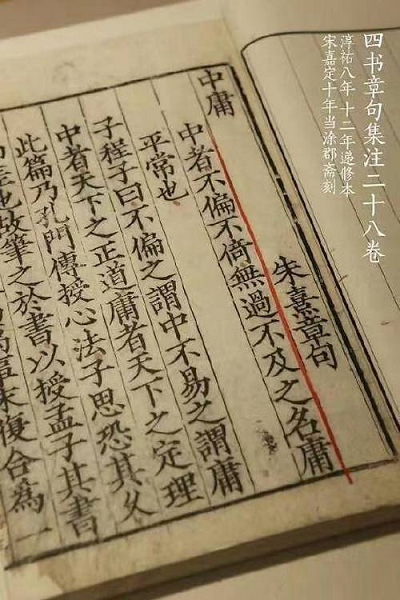 四书章句集注二十八卷
淳祐八年十二年递修本
宋嘉定十年当涂郡斋刻
中庸
朱熹章句
中者不偏不倚無過不及之名庸
平常也
子程子曰不偏之謂中不易之謂庸
中者天下之正道庸者天下之定理
此篇乃孔門傳授心法子思恐其久
差也故筆之於書以授孟子其書
事末復合為一